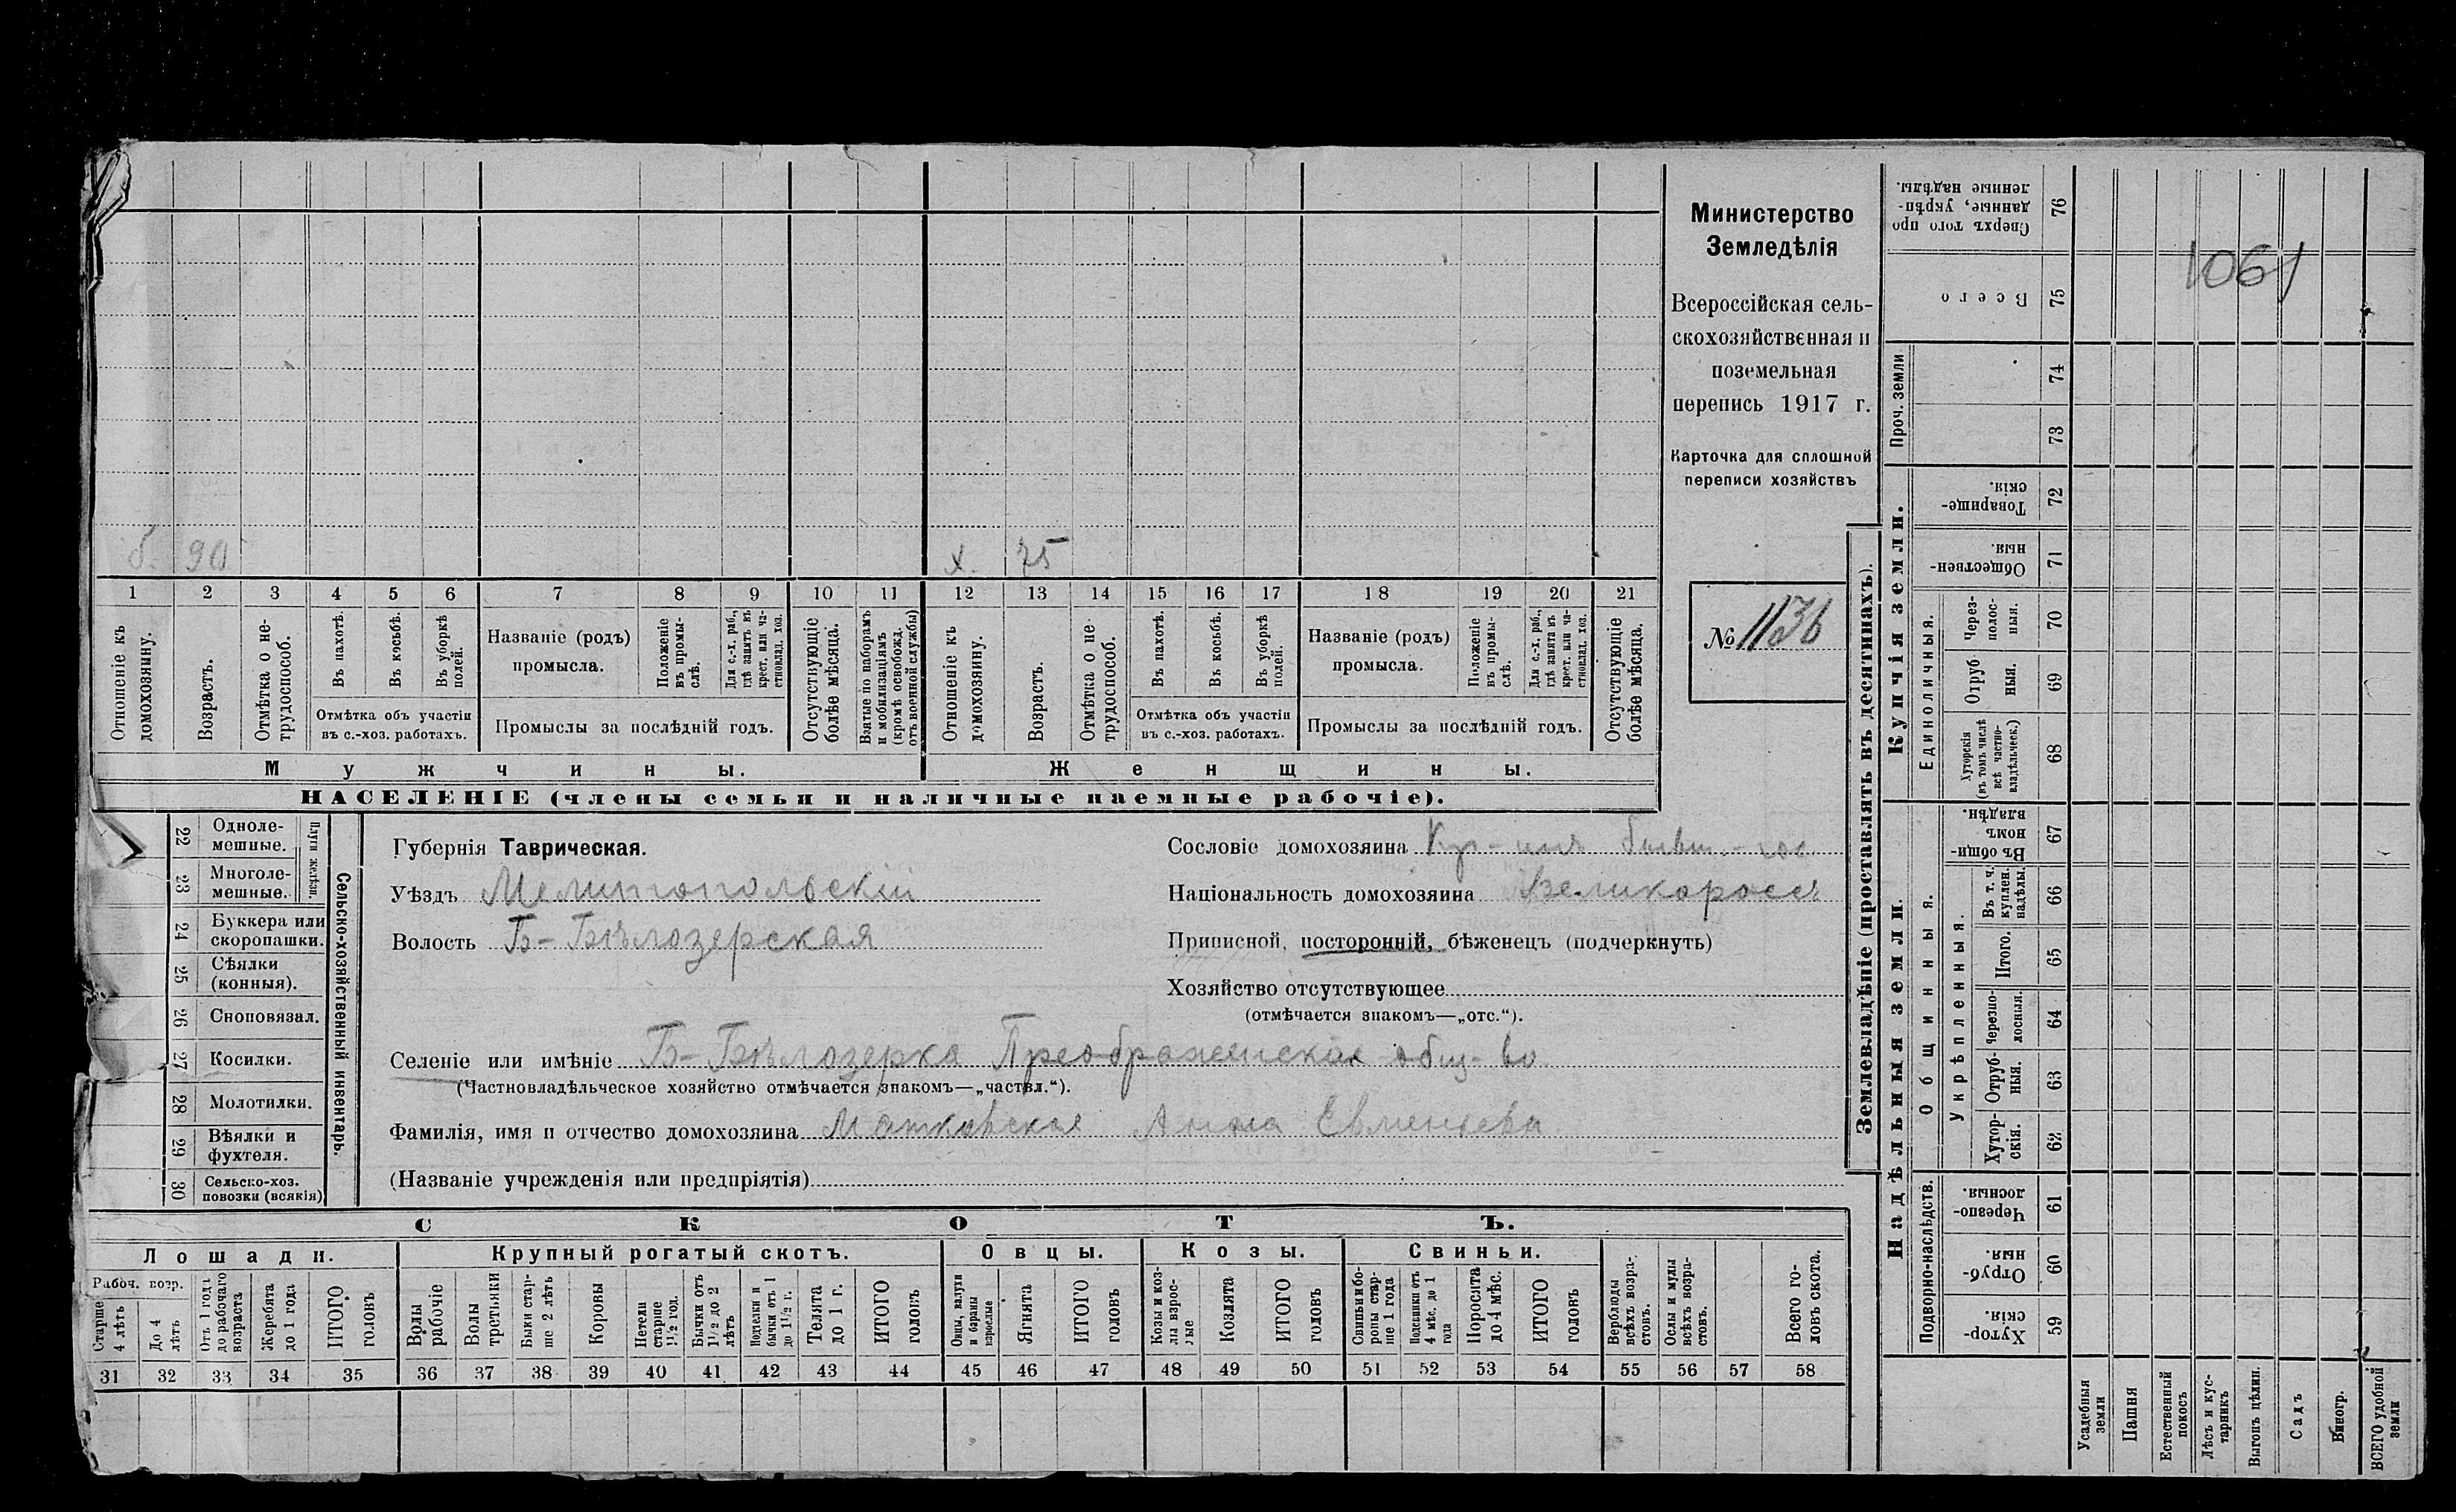 б. 90 х. 75
1 2 3 4 5 6 7 8 9 10 11 12 13 14 15 16 17 18 19 20 21
Отношеніе къ домохозяину.
Возрастъ.
Отмѣтка о не-трудоспособ.
Въ пахотѣ.
Въ косьбѣ.
Въ уборкѣ полей.
Отмѣтка объ участіи
въ с.-хоз. работахъ.
Названіе (родъ)
промысла.
Положеніе въ промы-слѣ.
Для с.-х. раб., гдѣ занятъ въ крест. или ча-стновлад. хоз.
Промыслы за послѣдній годъ.
Отсутствующіе болѣе мѣсяца.
Взятые по наборамъ и мобилизаціямъ (кромѣ освобожд. отъ военной службы)
Отношеніе къ домохозяину.
Возрастъ.
Отмѣтка о не-трудоспособ.
Въ пахотѣ.
Въ косьбѣ.
Въ уборкѣ полей.
Отмѣтка объ участіи
въ с.-хоз. работахъ.
Названіе (родъ)
промысла.
Положеніе въ промы-слѣ.
Для с.-х. раб., гдѣ занята въ крест. или ча-стновлад. хоз.
Промыслы за послѣдній годъ.
Отсутствующіе болѣе мѣсяца.
Мужчины. Женщины.
НАСЕЛЕНІЕ (члены семьи и наличные наемные рабочіе).
Министерство
Земледѣлія
Всероссійская сель-
скохозяйственная и
поземельная
перепись 1917 г.
Карточка для сплошной
переписи хозяйствъ
№ 1136
22 Одноле-мешные.
23 Многоле-мешные.
Плуги желѣзн.
24 Буккера или скоропашки.
25 Сѣялки (конныя).
26 Сноповязал.
27 Косилки.
28 Молотилки.
29 Вѣялки и фухтеля.
30 Сельско-хоз. повозки (всякія)
Сельско-хозяйственный инвентарь.
Губернія Таврическая.
Уѣздъ Мелитопольскій
Волость Б-Бѣлозерская
Сословіе домохозяина Кр-инъ бывш.-гос
Національность домохозяина Великороссъ
Приписной, посторонній, бѣженецъ (подчеркнуть)
Хозяйство отсутствующее
(отмѣчается знакомъ—„отс.“).
Селеніе или имѣніе Б-Бѣлозерка Преображенское общ-во
(Частновладѣльческое хозяйство отмѣчается знакомъ—„частвл.“).
Фамилія, имя и отчество домохозяина Матковская Анна Евменьева
(Названіе учрежденія или предпріятія)
СКОТЪ.
Лошади. Крупный рогатый скотъ. Овцы. Козы. Свиньи.
Рабоч. возр.
Старше 4 лѣтъ
До 4 лѣтъ
Отъ 1 года до рабочаго возраста
Жеребята до 1 года
ИТОГО головъ
Волы рабочіе
Волы третьяки
Быки стар-ше 2 лѣтъ
Коровы
Нетели старше 1½ год.
Бычки отъ 1½ до 2 лѣтъ
Подтелки и бычки отъ 1 до 1½ г.
Телята до 1 г.
ИТОГО головъ
Овцы, валухи и бараны взрослые
Ягнята
ИТОГО головъ
Козы и коз-лы взрос-лые
Козлята
ИТОГО головъ
Свиньи и бо-ровы стар-ше 1 года
Подсвинки отъ 4 мѣс. до 1 года
Поросята до 4 мѣс.
ИТОГО головъ
Верблюды всѣхъ возра-стовъ.
Ослы и мулы всѣхъ возра-стовъ.
Всего го-ловъ скота.
31 32 33 34 35 36 37 38 39 40 41 42 43 44 45 46 47 48 49 50 51 52 53 54 55 56 57 58
Землевладѣніе (проставлять въ десятинахъ).
1061
76 Сверхъ того про-данные, укрѣп-ленные надѣлы.
75 Всего
Проч. земли
74
73
Купчія земли.
72 Товарище-скія.
71 Обществен-ныя.
Единоличныя.
70 Через-полос-ныя.
69 Отруб-ныя.
68 Хуторскія (въ томъ числѣ всѣ частно-владѣльческ.)
Надѣльныя земли.
Общинныя.
67 Въ общи-номъ владѣн.
Укрѣпленныя.
66 Въ т. ч. куплен. надѣлы.
65 Итого.
64 Черезпо-лосныя.
63 Отруб-ныя.
62 Хутор-скія.
Подворно-наслѣдств.
61 Черезпо-лосныя.
60 Отруб-ныя.
59 Хутор-скія
Усадебныя земли
Пашня
Естественный покосъ
Лѣсъ и кус-тарникъ
Выгонъ цѣлин.
Садъ
Виногр.
ВСЕГО удобной земли